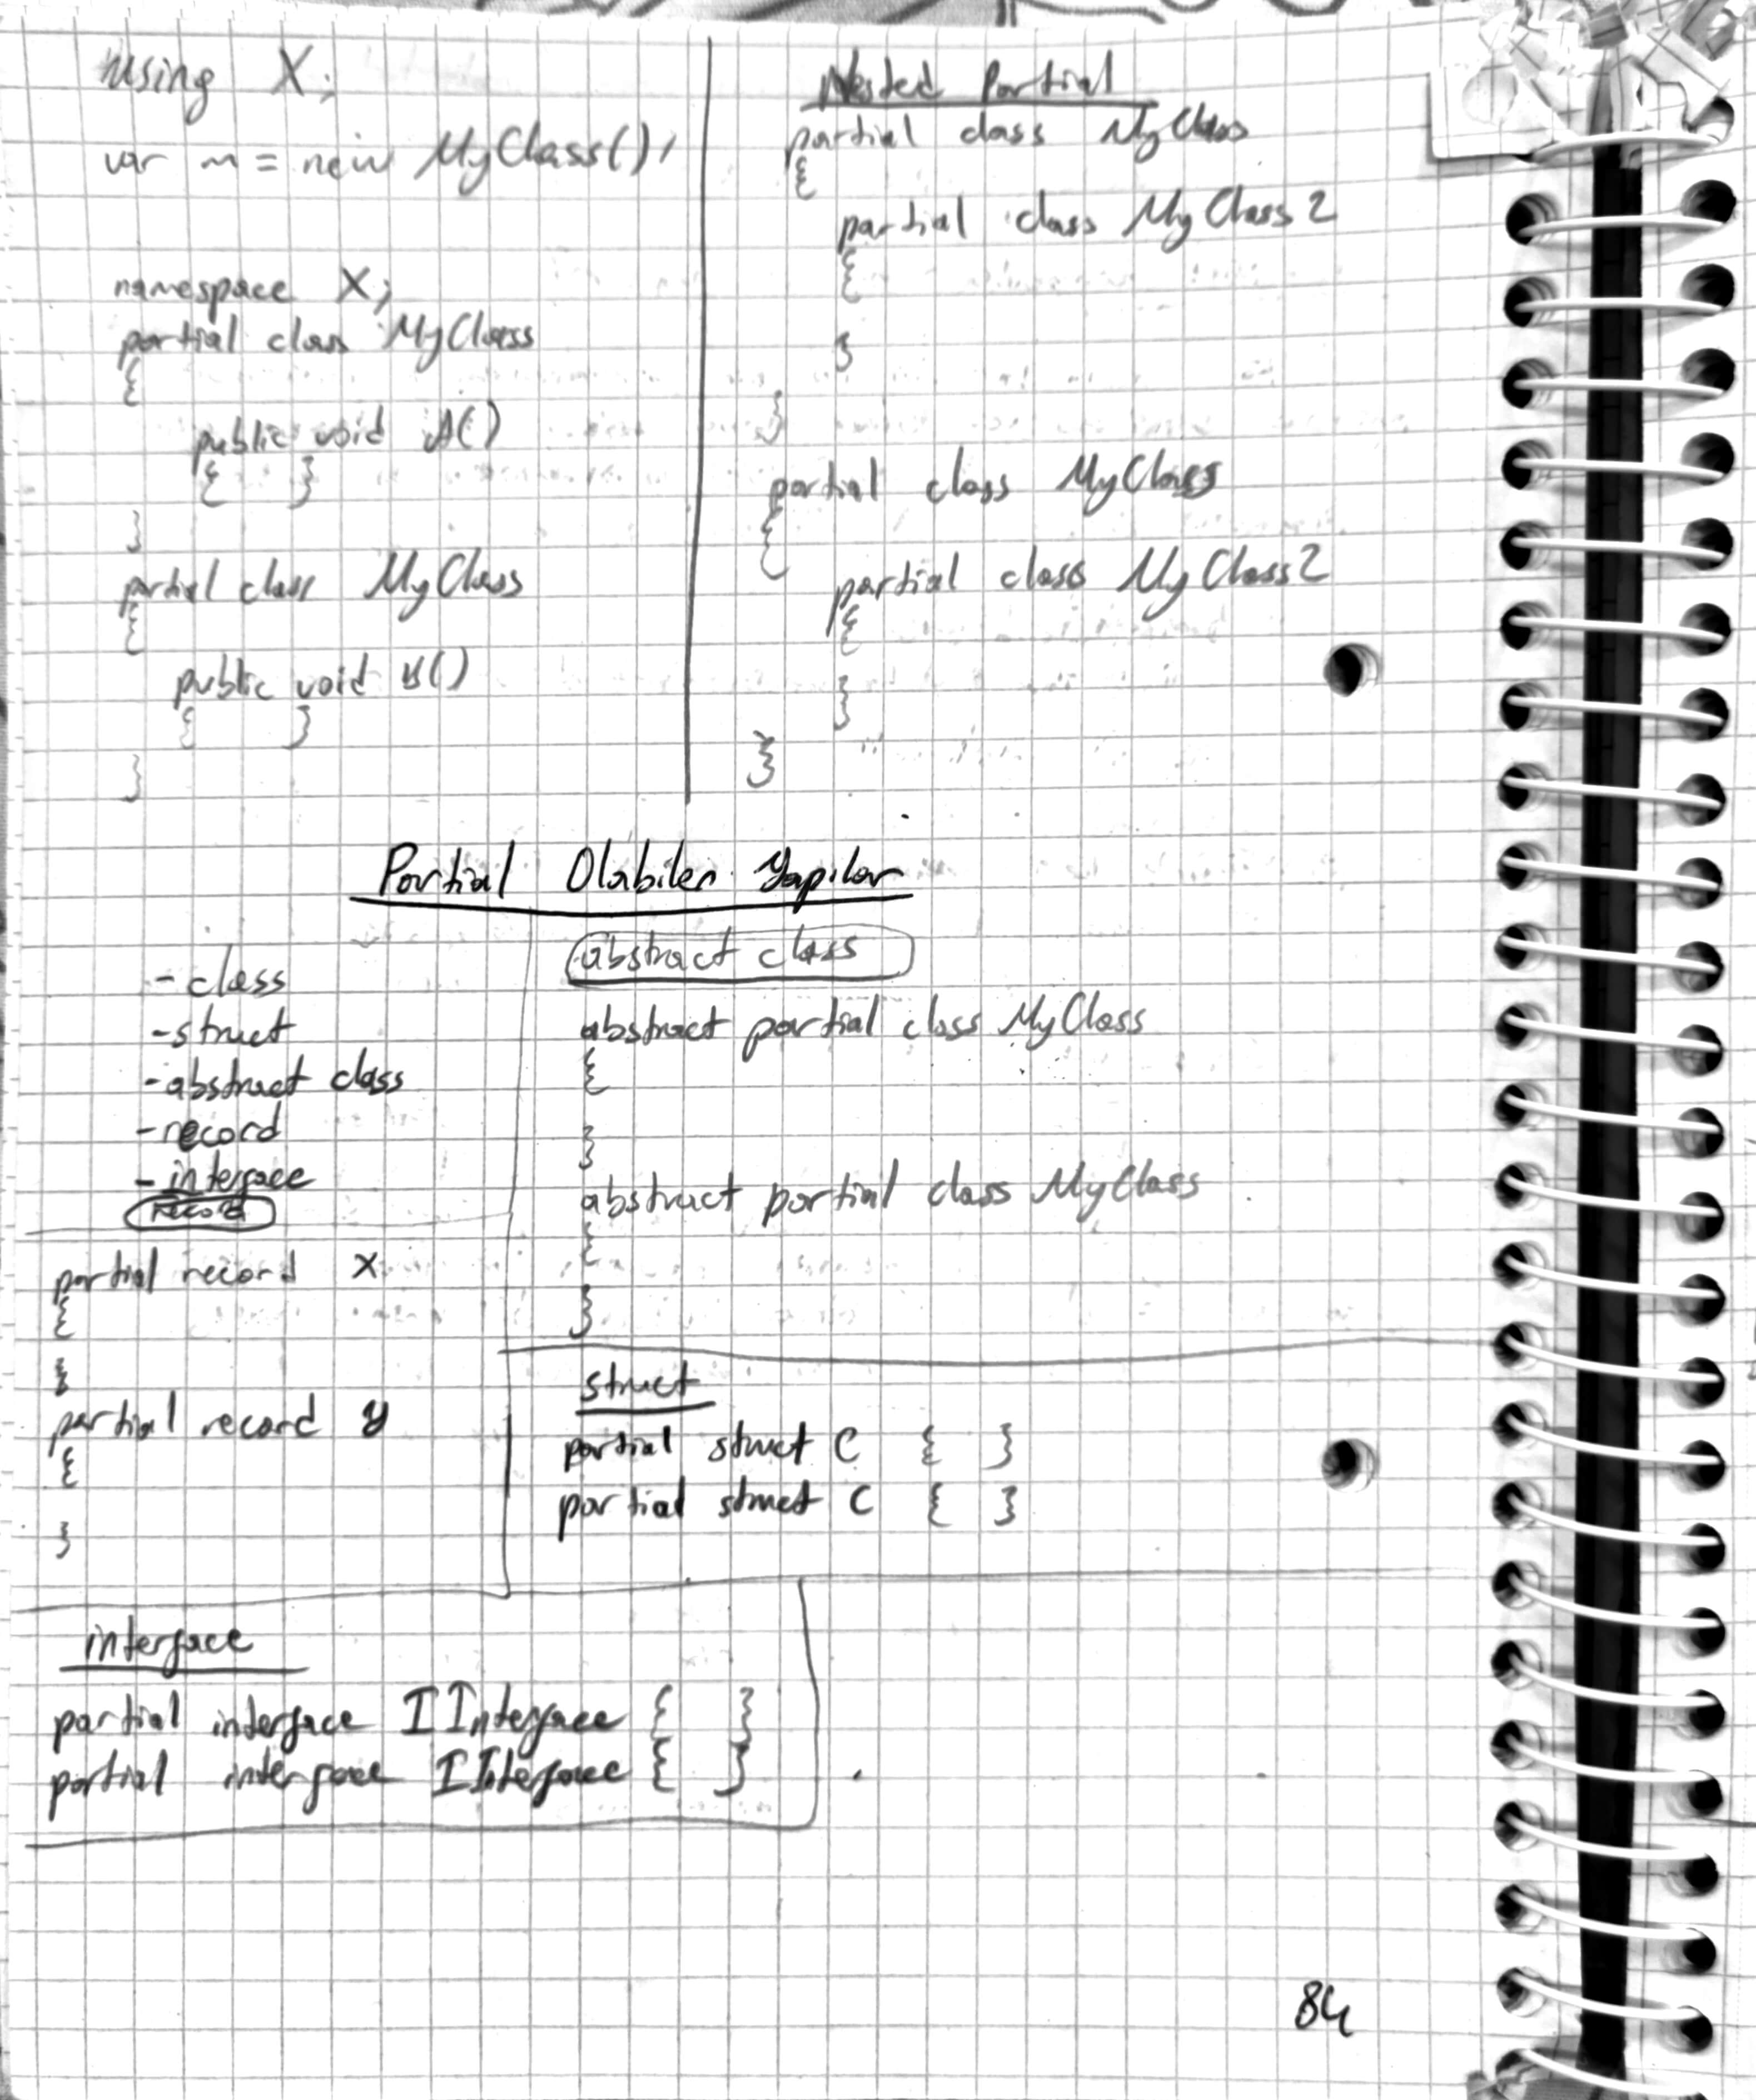 using X;
var m = new MyClass();
namespace X;
partial class MyClass
{
public void A()
{ }
}
partial class MyClass
{
public void B()
{ }
}
Nested Partial
partial class MyClass
{
partial class MyClass2
{
}
}
partial class MyClass
{
partial class MyClass2
{
}
}
Partial Olabilen Yapılar
- class
- struct
- abstract class
- record
- interface
record
partial record X
{
}
partial record y
{
}
abstract class
abstract partial class MyClass
{
}
abstract partial class MyClass
{
}
struct
partial struct C { }
partial struct C { }
interface
partial interface IInterface { }
partial interface IInterface { }
84